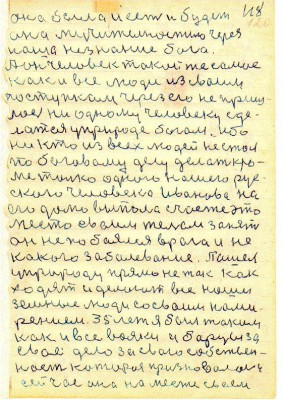 118
она была и есть и будет
она мучительностию через
наша незнание бога.
Он человек такий же самое
как и все люди из своим
поступкам через его не пришло
ни одному человеку сде-
латся у природе богом. ибо
ни кто из всех людей не стал
по боговому делу делат кро-
ме толко одного нашего рус-
ского человека Иванова на
его долю выпола счасте это
место своим телом занят
он не побаялся врага и не
какого заболевание. Пашел
у природу прямо не так как
ходят и делают все наши
земные люди со своим наме-
рением. 35 лет я был таким
как и все вояки и барцы за
свае дело за сваго собствен-
ност которая призновалас
сейчас она на месте своем